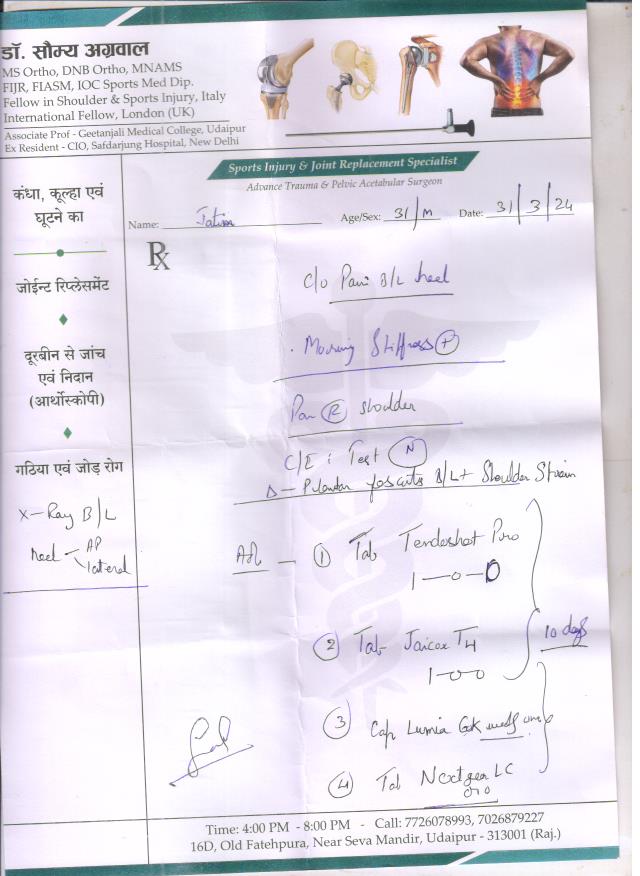 डॉ. सौम्य अग्रवाल
MS Ortho, DNB Ortho, MNAMS
FIJR, FIASM, IOC Sports Med Dip.
Fellow in Shoulder & Sports Injury, Italy
International Fellow, London (UK)
Associate Prof - Geetanjali Medical College, Udaipur
Ex Resident - CIO, Safdarjung Hospital, New Delhi
Sports Injury & Joint Replacement Specialist
Advance Trauma & Pelvic Acetabular Surgeon
Name: Age/Sex: 31/M Date: 31/3/24
Rx
कंधा, कूल्हा एवं
घूटने का
जोईन्ट रिप्लेसमेंट
दूरबीन से जांच
एवं निदान
(आर्थोस्कोपी)
गठिया एवं जोड़ रोग
X-Ray B/L
heel - AP
lateral
c/o Pain B/L heel
Morning Stiffness (+)
Pain (R) shoulder
C/E : Test (N)
Δ - Plantar fascitis B/L + Shoulder Strain
① Tab Tendoshot Pro
1-0-0
② Tab Jaicox T4
1-0-0
10 days
③ Cap Lumia 60K
④ Tab Nextgen LC
0 1 0
Time: 4:00 PM - 8:00 PM - Call: 7726078993, 7026879227
16D, Old Fatehpura, Near Seva Mandir, Udaipur - 313001 (Raj.)